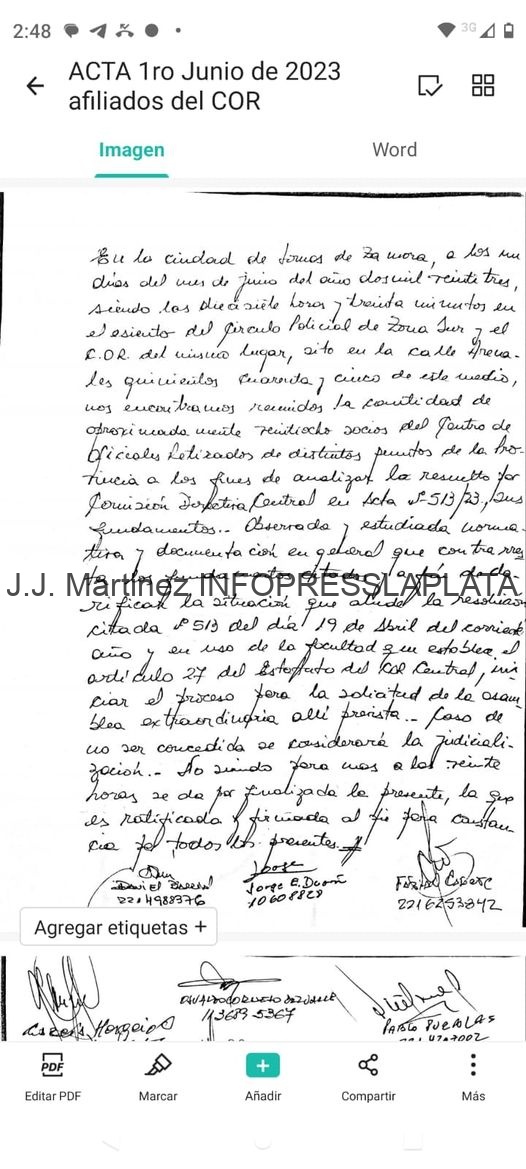 2:48
3G
ACTA 1ro Junio de 2023
afiliados del COR
Imagen
Word
En la ciudad de Lomas de Zamora, a los un
dias del mes de junio del año dosmil veinte tres,
siendo las diecisiete horas y treinta minutos en
el asiento del Circulo Policial de Zona Sur y el
C.O.R. del mismo lugar, sito en la calle Arena-
les quinientos cuarenta y cinco de este medio,
nos encontramos reunidos la cantidad de
aproximadamente veintiocho socios del Centro de
Oficiales Retirados de distintos puntos de la Pro-
vincia a los fines de analizar lo resuelto por
Comisión Directiva Central en Acta N° 513/23, sus
fundamentos.. Observada y estudiada norma-
tiva y documentación en general que contrarres-
J.J. Martinez INFOPRESSLAPLATA
rificar la situación que alude la resolución
citada N° 513 del día 19 de Abril del corriente
año y en uso de la facultad que establece el
artículo 27 del Estatuto del COR Central, ini-
ciar el proceso para la solicitud de la asam-
blea extraordinaria allí prevista.. Caso de
no ser concedida se considerará la judiciali-
zación.- No siendo para mas a las veinte
horas se da por finalizada la presente, la que
es ratificada y firmada al pie para constan-
cia por todos los presentes.
Jorge E.
10608828
2214988376
2216253842
Agregar etiquetas +
113689 5367
PABLO
Editar PDF
Marcar
Añadir
Compartir
Más